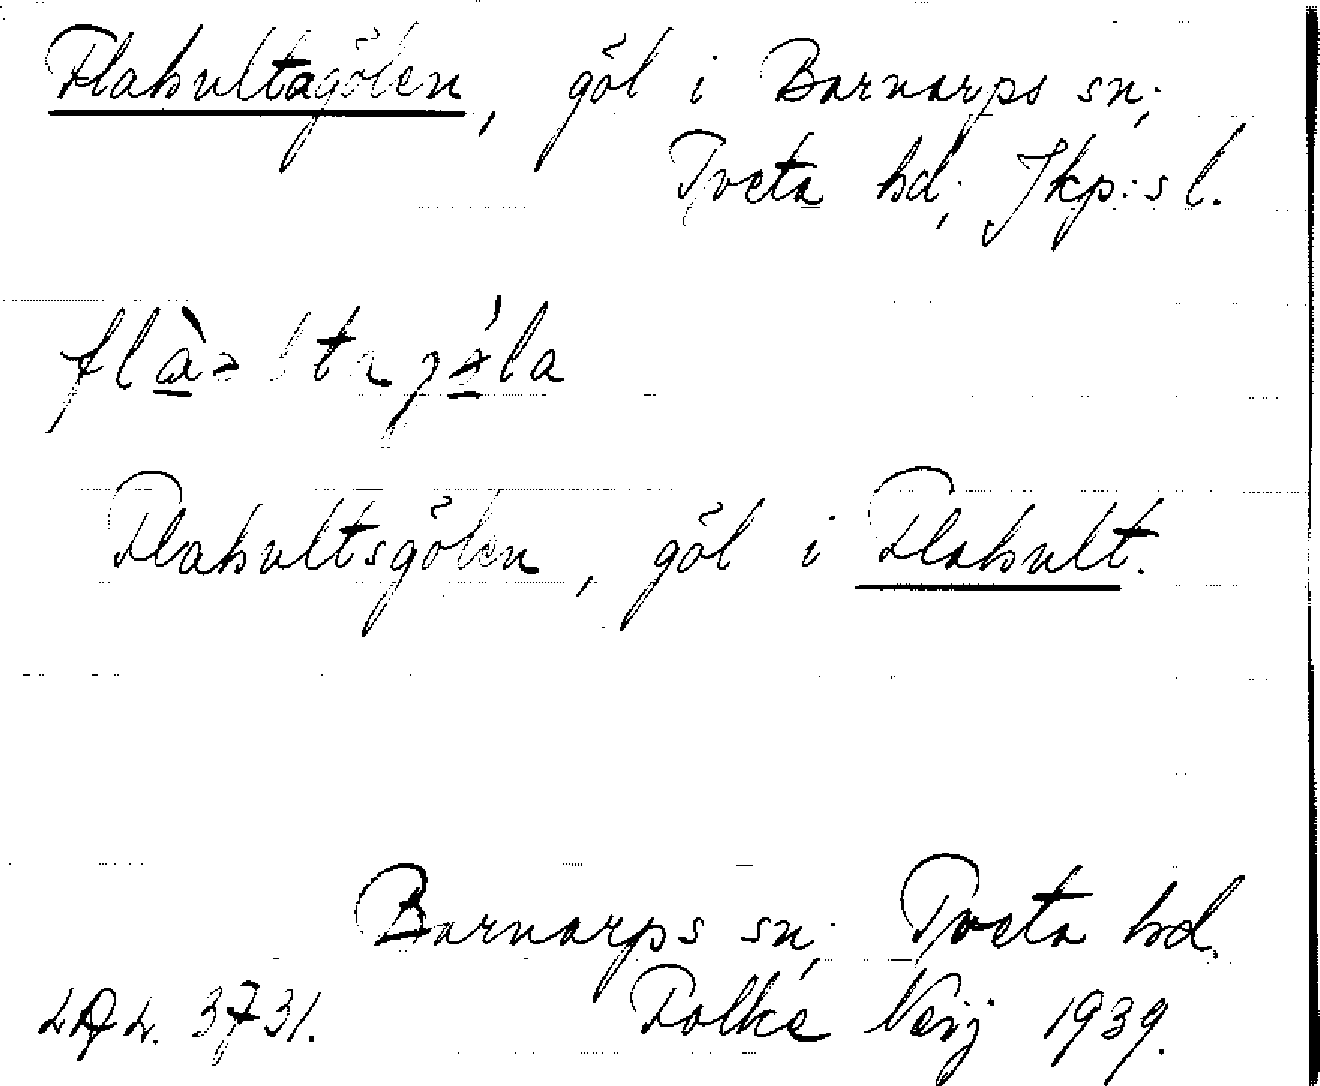 Flahultagölen, göl i Barnarps sn;
Tveta hd; Jkp:s l.
Flahultsgölen, göl i Flahult.
Barnarps sn; Tveta hd.
3731. Folke 1939.